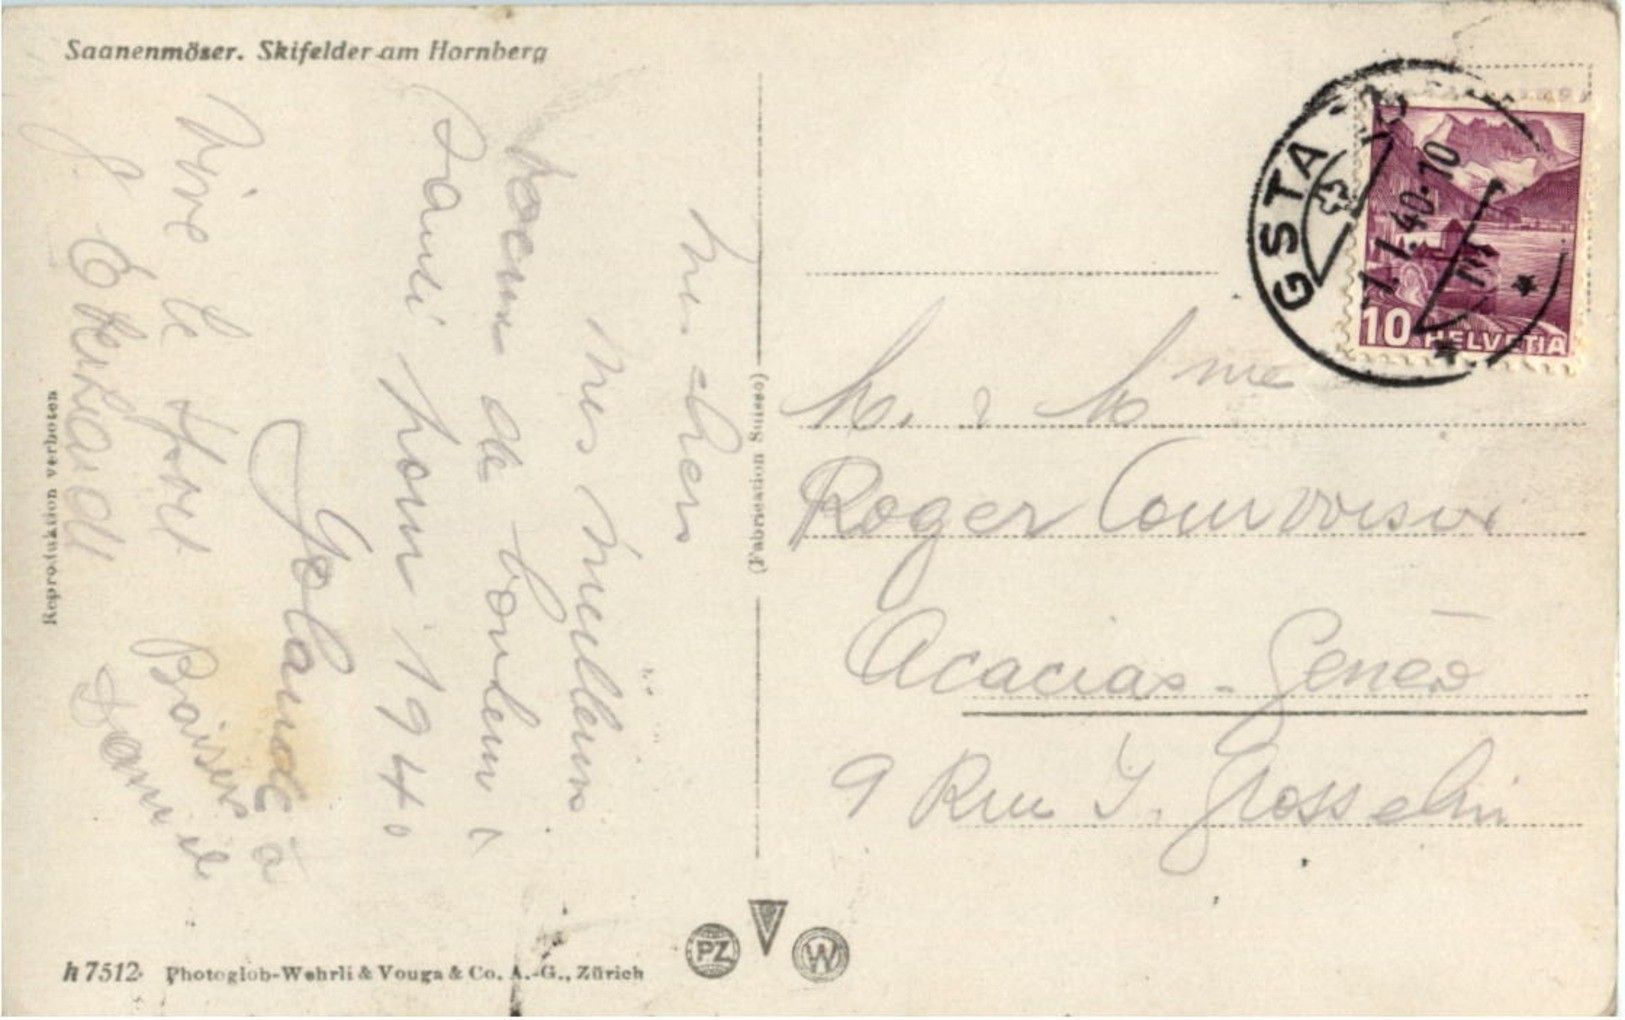 Saanenmöser. Skifelder am Hornberg
Mes chers
Mes meilleurs
voeux de bonheur,
Santé pour 1940
Yolande
Vive le
Baisers
Daniel
Reproduktion verboten
(Fabrication Suisse)
h 7512 Photoglob-Wehrli & Vouga & Co. A.-G., Zürich
PZ
W
GSTAAD
-1.1.40-10
10 HELVETIA
M. & Mme
Roger Courvoisier
Acacias - Genève
9 Rue J. Grosselin